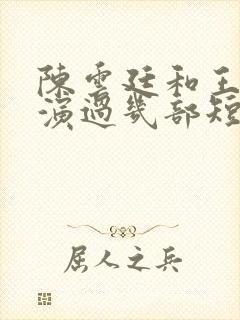 陳雲廷和王
演過幾部短
屈人之兵